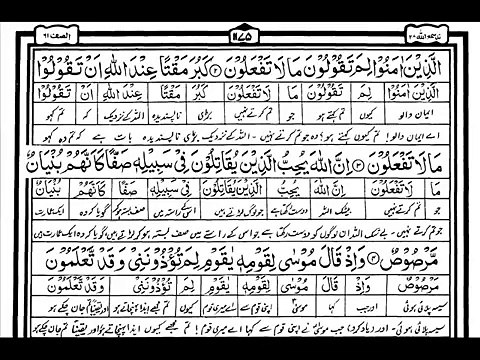 الصف ٦١
١١٧٥
قد سمع الله ٢٨
الَّذِيْنَ اٰمَنُوْا لِمَ تَقُوْلُوْنَ مَا لَا تَفْعَلُوْنَ ۝٢ كَبُرَ مَقْتًا عِنْدَ اللّٰهِ اَنْ تَقُوْلُوْا
الَّذِيْنَ اٰمَنُوْا لِمَ تَقُوْلُوْنَ مَا لَا تَفْعَلُوْنَ كَبُرَ مَقْتًا عِنْدَ اللّٰهِ اَنْ تَقُوْلُوْا
ایمان والو! کیوں تم کہتے ہو جو تم کرتے نہیں بڑی ناپسندیدہ اللہ کے نزدیک کہ تم کہو
اے ایمان والو! تم کیوں کہتے ہو؟ وہ جو تم کرتے نہیں۔ اللہ کے نزدیک بڑی ناپسندیدہ بات ہے کہ تم وہ کہو
مَا لَا تَفْعَلُوْنَ ۝٣ اِنَّ اللّٰهَ يُحِبُّ الَّذِيْنَ يُقَاتِلُوْنَ فِيْ سَبِيْلِهٖ صَفًّا كَاَنَّهُمْ بُنْيَانٌ
مَا لَا تَفْعَلُوْنَ اِنَّ اللّٰهَ يُحِبُّ الَّذِيْنَ يُقَاتِلُوْنَ فِيْ سَبِيْلِهٖ صَفًّا كَاَنَّهُمْ بُنْيَانٌ
جو تم کرتے نہیں بیشک اللہ دوست رکھتا ہے جو لوگ لڑتے ہیں اسکے راستہ میں صف بستہ ہو کر گویا کہ وہ ایک عمارت
جو تم کرتے نہیں۔ بے شک اللہ ان لوگوں کو دوست رکھتا ہے جو اس کے راستے میں صف بستہ ہو کر لڑتے ہیں گویا کہ وہ ایک عمارت ہیں
مَّرْصُوْصٌ ۝٤ وَاِذْ قَالَ مُوْسٰى لِقَوْمِهٖ يٰقَوْمِ لِمَ تُؤْذُوْنَنِيْ وَقَدْ تَّعْلَمُوْنَ
مَّرْصُوْصٌ وَاِذْ قَالَ مُوْسٰى لِقَوْمِهٖ يٰقَوْمِ لِمَ تُؤْذُوْنَنِيْ وَقَدْ تَّعْلَمُوْنَ
سیسہ پلائی ہوئی اور جب کہا موسیٰ اپنی قوم سے اے میری قوم کیوں تم مجھے ایذا پہنچاتے ہو اور یقیناً تم جان چکے ہو
سیسہ پلائی ہوئی۔ اور (یاد کرو) جب موسیٰ نے اپنی قوم سے کہا اے میری قوم! تم مجھے کیوں ایذا پہنچاتے ہو؟ اور یقیناً تم جان چکے ہو